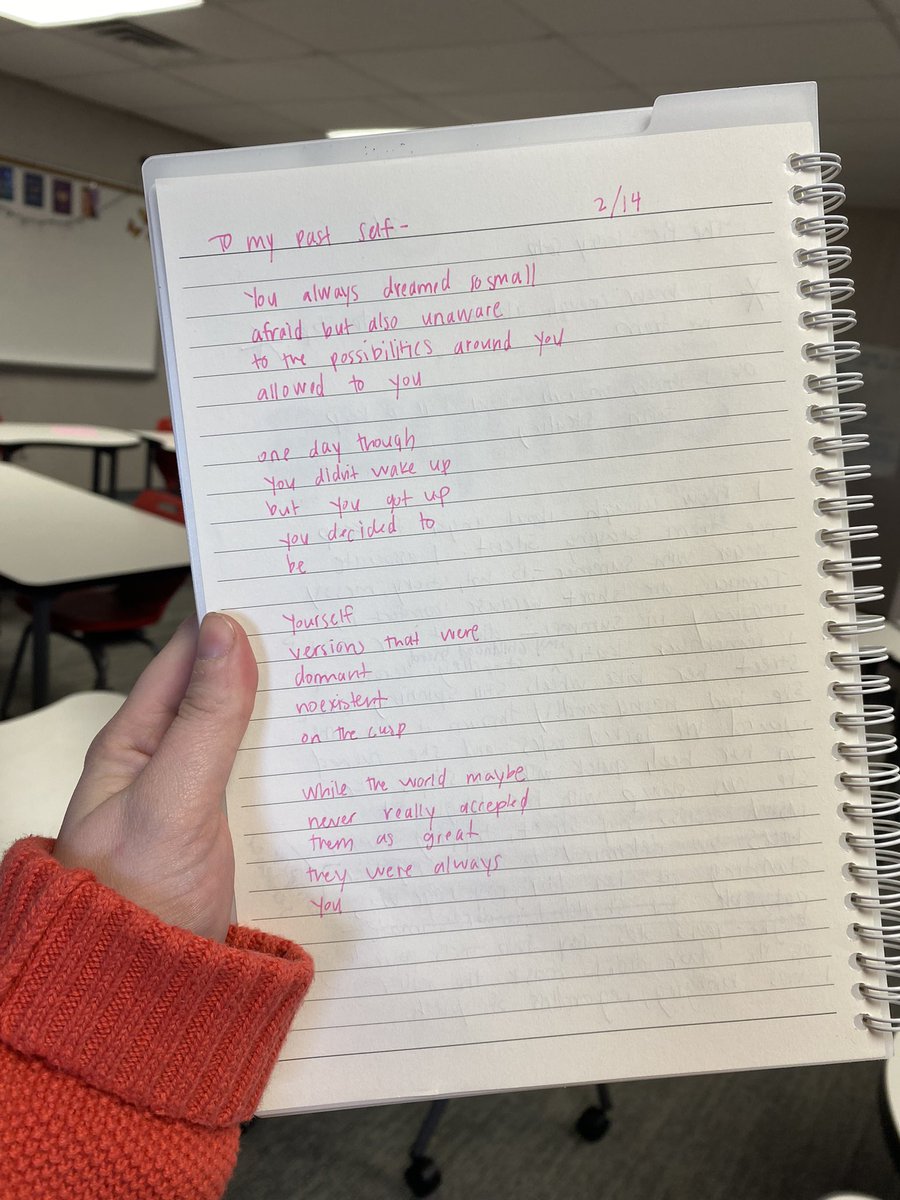 To my past self- 2/14
You always dreamed so small
afraid but also unaware
to the possibilities around you
allowed to you
one day though
you didn't wake up
but you got up
you decided to
be
Yourself
versions that were
dormant
noexistent
on the cusp
while the world maybe
never really accepted
them as great
they were always
You